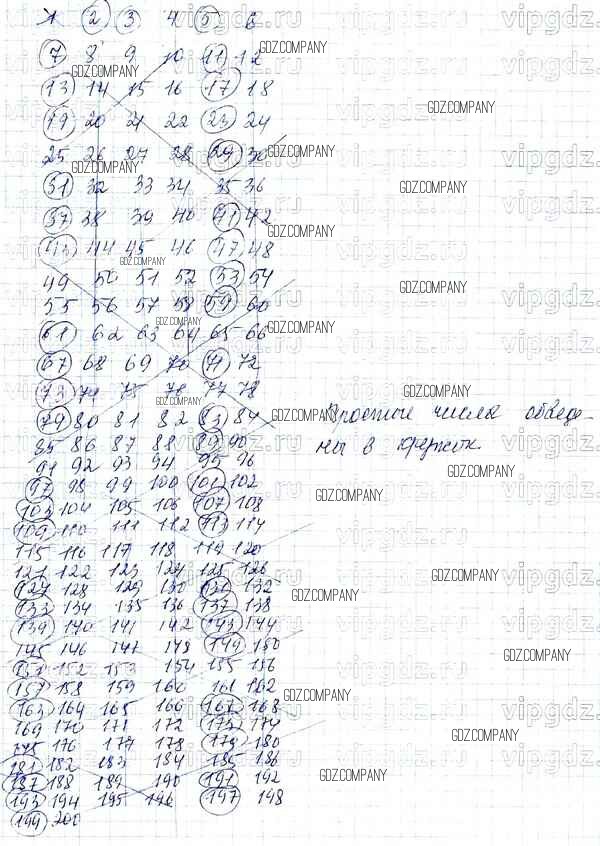 1 2 3 4 5 6
7 8 9 10 11 12
13 14 15 16 17 18
19 20 21 22 23 24
25 26 27 28 29 30
31 32 33 34 35 36
37 38 39 40 41 42
43 44 45 46 47 48
49 50 51 52 53 54
55 56 57 58 59 60
61 62 63 64 65 66
67 68 69 70 71 72
73 74 75 76 77 78
79 80 81 82 83 84
85 86 87 88 89 90
91 92 93 94 95 96
97 98 99 100 101 102
103 104 105 106 107 108
109 110 111 112 113 114
115 116 117 118 119 120
121 122 123 124 125 126
127 128 129 130 131 132
133 134 135 136 137 138
139 140 141 142 143 144
145 146 147 148 149 150
151 152 153 154 155 156
157 158 159 160 161 162
163 164 165 166 167 168
169 170 171 172 173 174
175 176 177 178 179 180
181 182 183 184 185 186
187 188 189 190 191 192
193 194 195 196 197 198
199 200
Простые числа обведе-
ны в кружок.
vipgdz.ru
GDZ.COMPANY